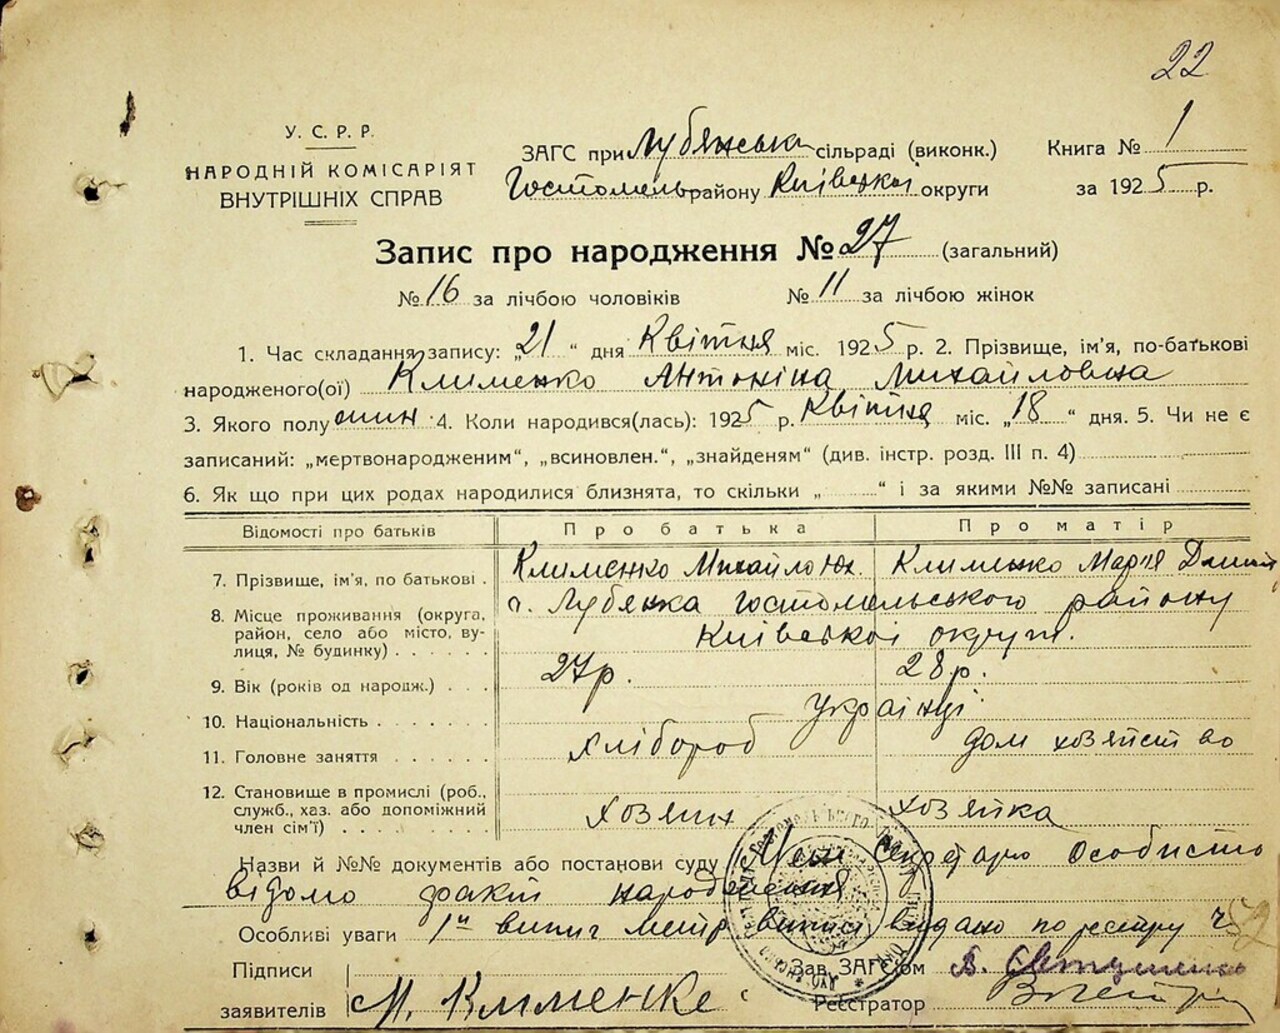 22
У. С. Р. Р.
НАРОДНІЙ КОМІСАРІЯТ
ВНУТРІШНІХ СПРАВ
ЗАГС при Лубянська сільраді (виконк.) Книга № 1
Гостомельр району Київської округи за 1925 р.
Запис про народження № 27 (загальний)
№ 16 за лічбою чоловіків № 11 за лічбою жінок
1. Час складання запису: „21“ дня Квітня міс. 1925 р. 2. Прізвище, ім'я, по-батькові
народженого(ої) Клименко Антоніна Михайловна
3. Якого полу жин 4. Коли народився(лась): 1925 р. Квітня міс. „18“ дня. 5. Чи не є
записаний: „мертвонародженим“, „всиновлен.“, „знайденям“ (див. інстр. розд. III п. 4)
6. Як що при цих родах народилися близнята, то скільки „ “ і за якими №№ записані
Відомості про батьків Про батька Про матір
7. Прізвище, ім'я, по батькові . Клименко Михайло Юх. Клименко Марія
8. Місце проживання (округа, с. Лубянка Гостомельського району
район, село або місто, ву- Київської округи.
лиця, № будинку) . . . . . .
9. Вік (років од народж.) . . . 27р. 28р.
10. Національність . . . . . . . Українці
11. Головне заняття . . . . . . хлібороб дом хозяйство
12. Становище в промислі (роб.,
служб., хаз. або допоміжний хозяин хозяйка
член сім'ї) . . . . . . . . .
Назви й №№ документів або постанови суду Мені Секретарю Особисто
відомо факт народження
Особливі уваги 1й випис метр виписі видано по реєстру ч
Підписи Зав. ЗАГС'ом
заявителів М. Клименко Реєстратор